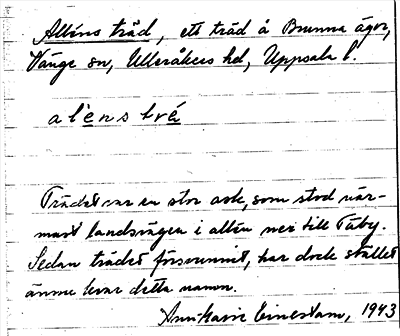 Alléns träd, ett träd å Brunna ägor,
Vänge sn, Ulleråkers hd, Uppsala l.
alènstré
Trädet var en stor ask, som stod när-
mast landsvägen i allén ner till Täby.
Sedan trädet försvunnit, har dock stället
ännu kvar detta namn.
1943